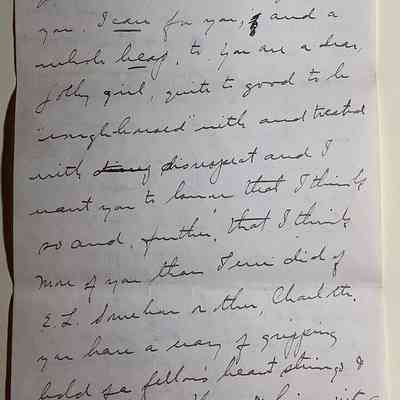 you. I care for you, & and a
whole heap, to. You are a dear,
jolly girl, quite to good to be
"roughhoused" with and treated
with disrespect and I
want you to know that I think
so and, further, that I think
more of you than I ever did of
E. L. Somehow or other, Charlotte,
you have a way of gripping
hold se fellow's heart strings &